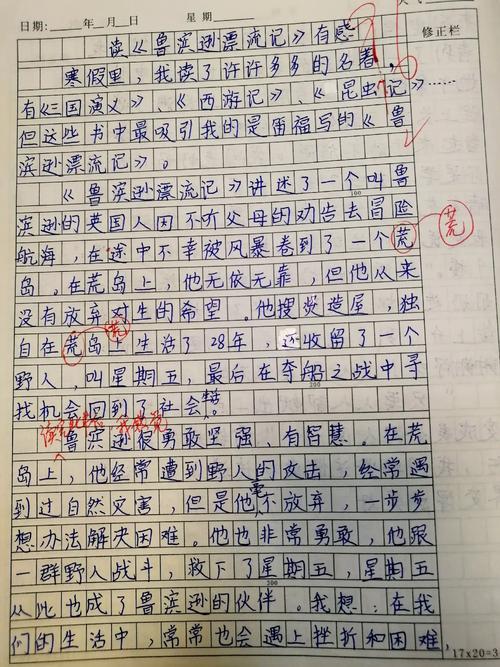 日期：　　年　月　日　　星期
修正栏
读《鲁滨逊漂流记》有感
寒假里，我读了许许多多的名著，
有《三国演义》、《西游记》、《昆虫记》……
但这些书中最吸引我的是笛福写的《鲁
滨逊漂流记》。
《鲁滨逊漂流记》讲述了一个叫鲁
100
滨逊的英国人因不听父母的劝告去冒险
航海，在途中不幸被风暴卷到了一个荒 荒
岛。在荒岛上，他无依无靠，但他从来
没有放弃对生的希望。他搜 造屋，独
自在荒岛上生活了28年，还收留了一个
荒
野人，叫星期五，最后在夺船之战中寻
200
找机会回到了社会。
鲁滨逊很勇敢坚强、有智慧。在荒
岛上，他经常遭到野人的攻击，经常遇
到过自然灾害，但是他毫不放弃，一步步
想办法解决困难。他也非常勇敢，他跟
一群野人战斗，救下了星期五，星期五
300
从此也成了鲁滨逊的伙伴。我想：在我
们的生活中，常常也会遇上挫折和困难，
17×20=3